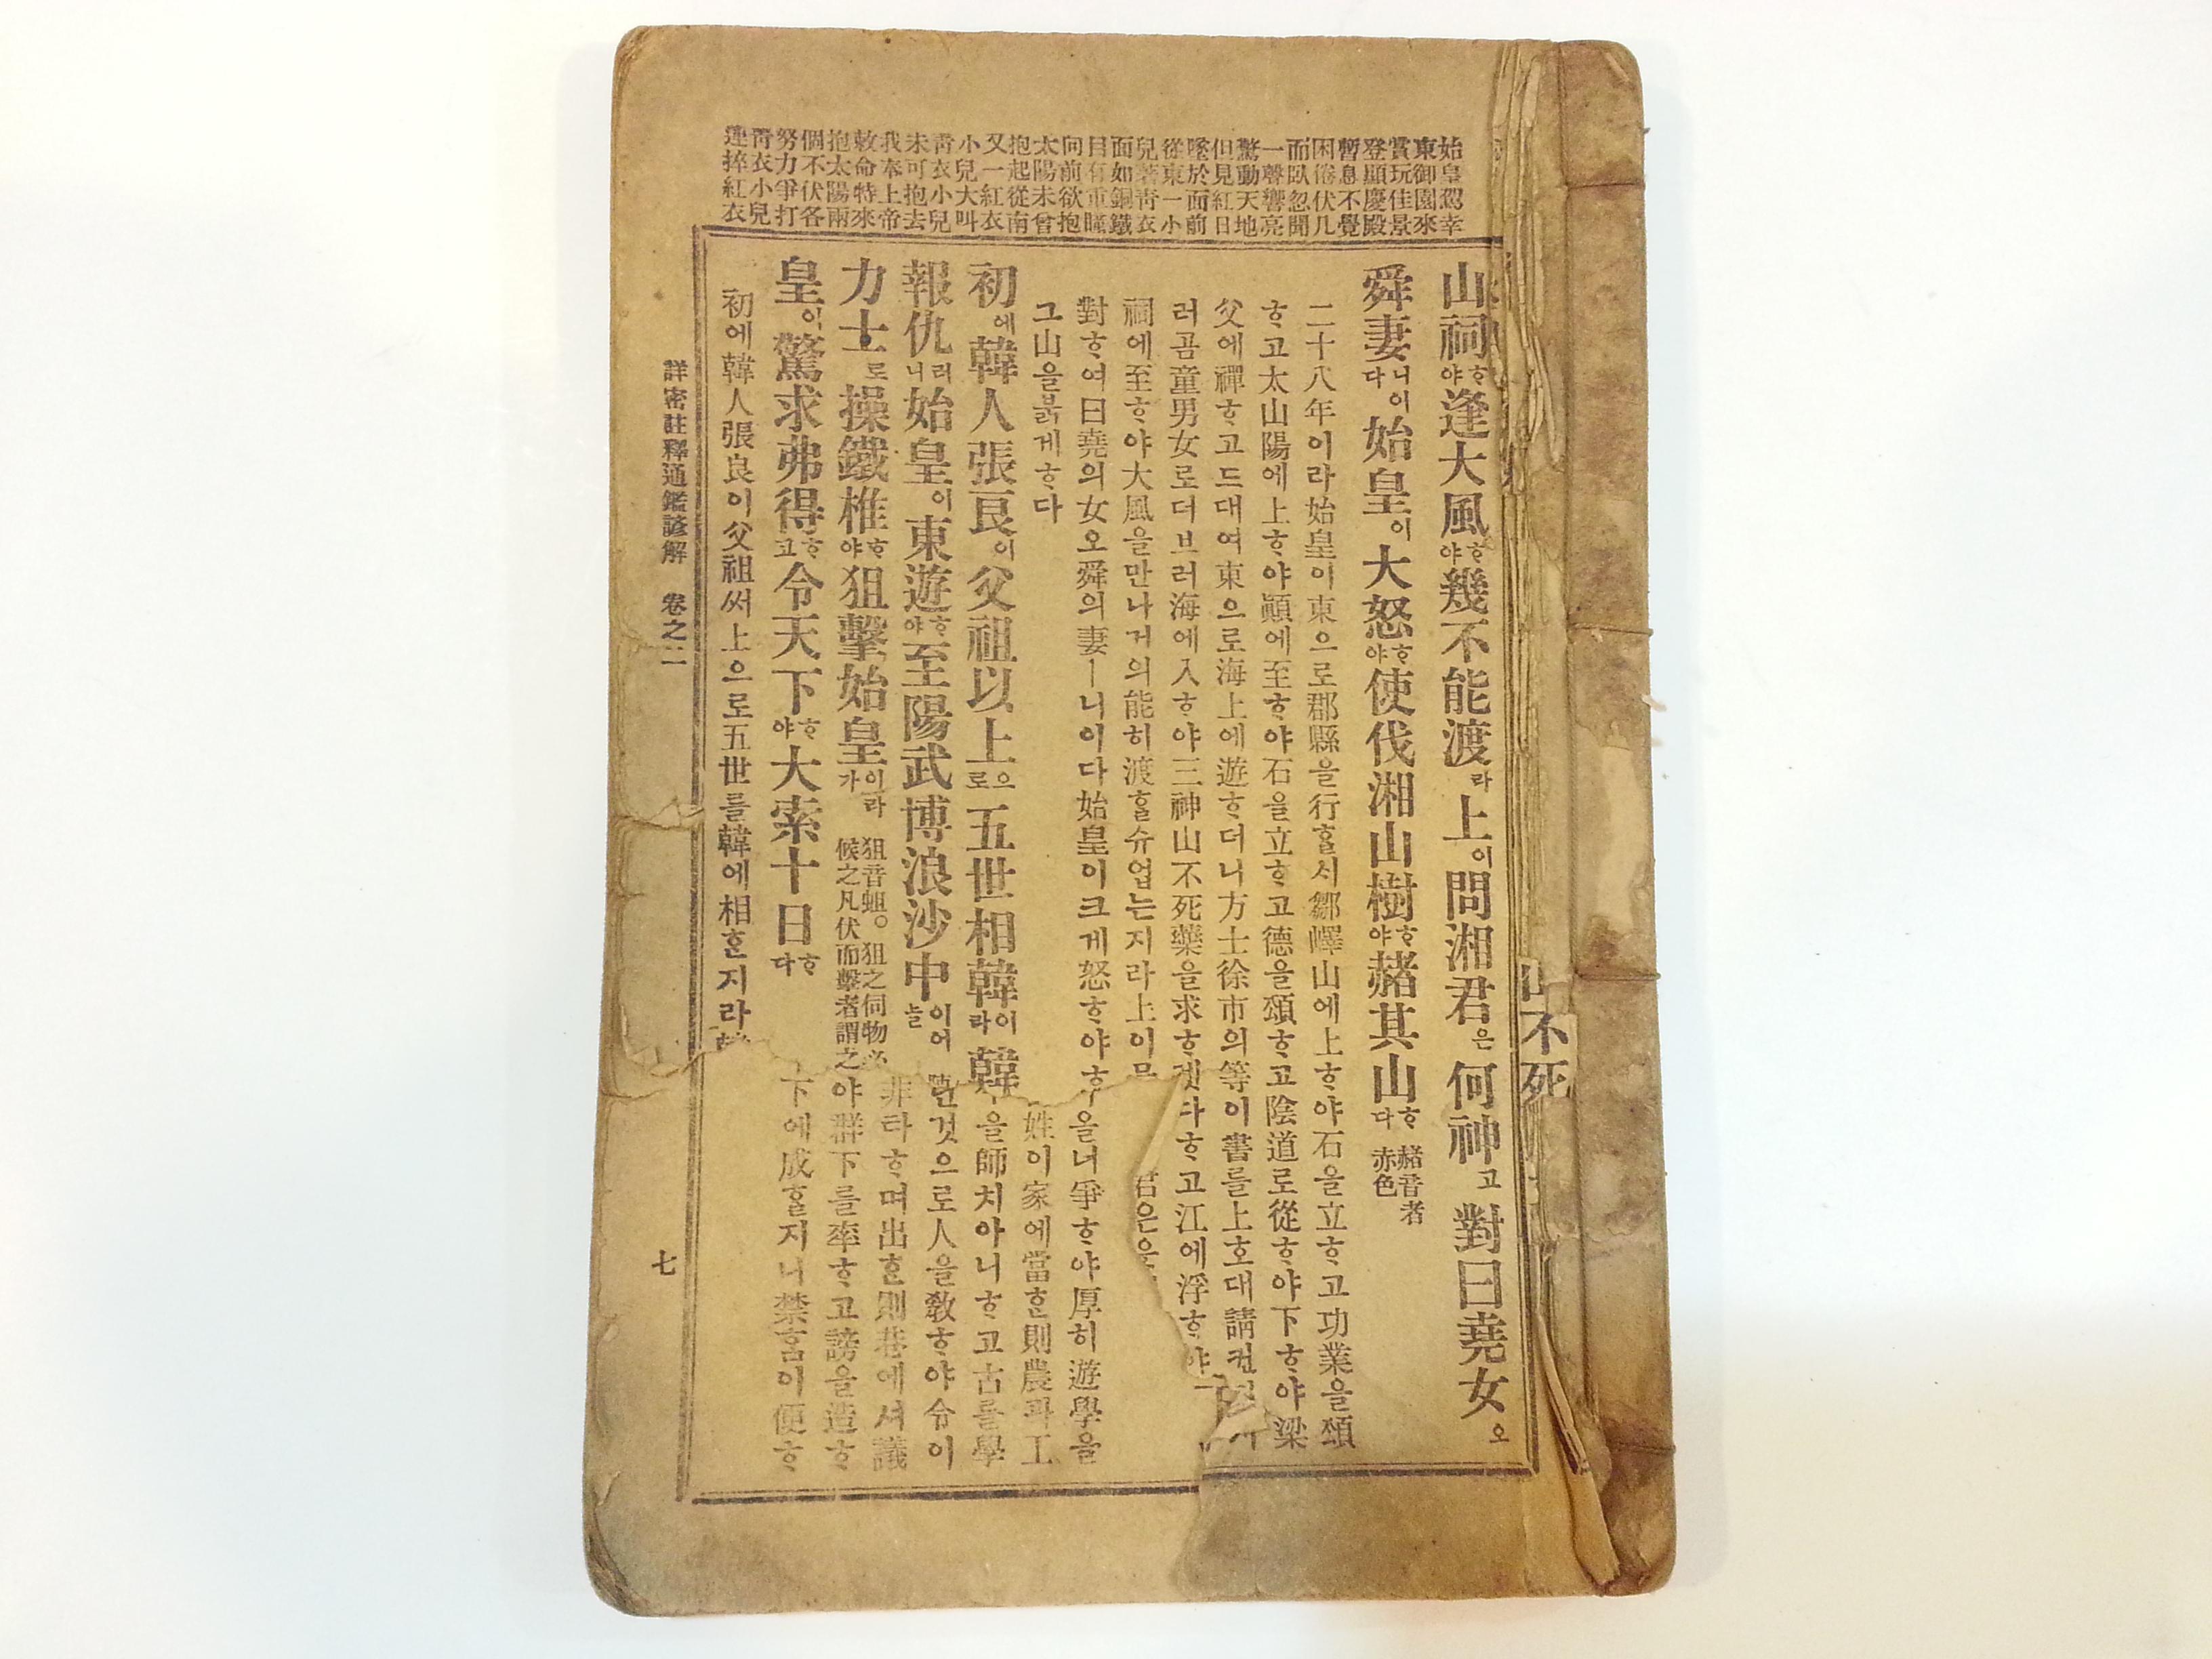 始皇駕幸
東御園來
賞玩佳景
登顯慶殿
暫息不覺
困倦伏几
而臥忽聞
一聲響亮
驚動天地
但見紅日
墜於面前
從東一小
兒著靑衣
面如銅鐵
目有重瞳
向前欲抱
太陽未曾
抱起從南
又一紅衣
小兒大叫
靑衣小兒
未可抱去
我奉上帝
敕命特來
抱太陽兩
個不伏各
努力爭打
靑衣小兒
連捽紅衣
山不死
山祠ᄒᆞ야逢大風ᄒᆞ야幾不能渡라上이問湘君은何神고對曰堯女오
舜妻니이다始皇이大怒ᄒᆞ야使伐湘山樹ᄒᆞ야赭其山ᄒᆞ다 赭音者赤色
二十八年이라始皇이東으로郡縣을行ᄒᆞᆯᄉᆡ鄒嶧山에上ᄒᆞ야石을立ᄒᆞ고功業을頌
ᄒᆞ고太山陽에上ᄒᆞ야顚에至ᄒᆞ야石을立ᄒᆞ고德을頌ᄒᆞ고陰道로從ᄒᆞ야下ᄒᆞ야梁
父에禪ᄒᆞ고드대여東으로海上에遊ᄒᆞ더니方士徐市의等이書를上호대請컨
러곰童男女로더브러海에入ᄒᆞ야三神山不死藥을求ᄒᆞ다ᄒᆞ고江에浮ᄒᆞ야
祠에至ᄒᆞ야大風을만나거의能히渡ᄒᆞᆯ슈업는지라上이무 君은
對ᄒᆞ여曰堯의女오舜의妻ㅣ니이다始皇이크게怒ᄒᆞ야ᄒᆞ 을녀爭ᄒᆞ야厚히遊學을
그山을붉게ᄒᆞ다 姓이家에當ᄒᆞᆫ則農과工
初에韓人張良이父祖以上으로五世相韓이라韓 을師치아니ᄒᆞ고古를學
報仇러니始皇이東遊ᄒᆞ야至陽武博浪沙中이어늘 것으로人을敎ᄒᆞ야令이
力士로操鐵椎ᄒᆞ야狙擊始皇이라가 狙音蛆。狙之伺物必候之凡伏而擊者謂之 非타ᄒᆞ며出ᄒᆞᆫ則巷에셔議
야群下를率ᄒᆞ고謗을造ᄒᆞ
皇이驚求弗得ᄒᆞ고令天下ᄒᆞ야大索十日ᄒᆞ다 下에成ᄒᆞᆯ지니禁홈이便ᄒᆞ
初에韓人張良이父祖써上으로五世를韓에相ᄒᆞᆫ지라
詳密註釋通鑑諺解 卷之二
七